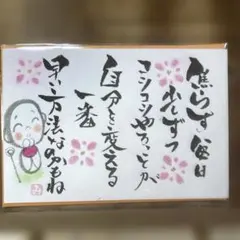 焦らず毎日
少しずつ
コツコツやることが
自分を変える
一番
早い方法なのかもね